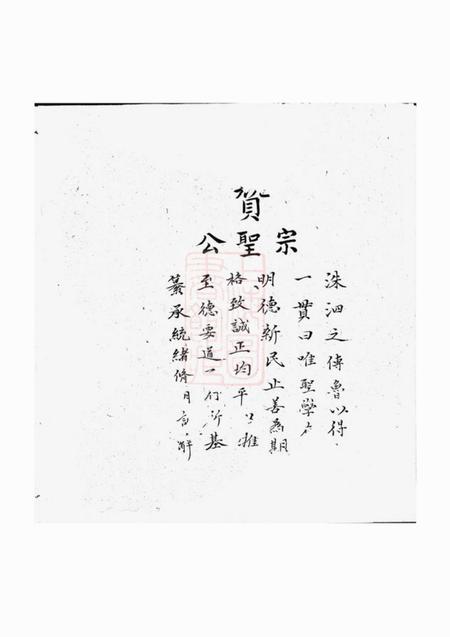 贊
宗聖公
洙泗之傳魯以得
一貫曰唯聖學
明德新民止善為期
格致誠正均平推
至德要道行所基
纂承統緒脩